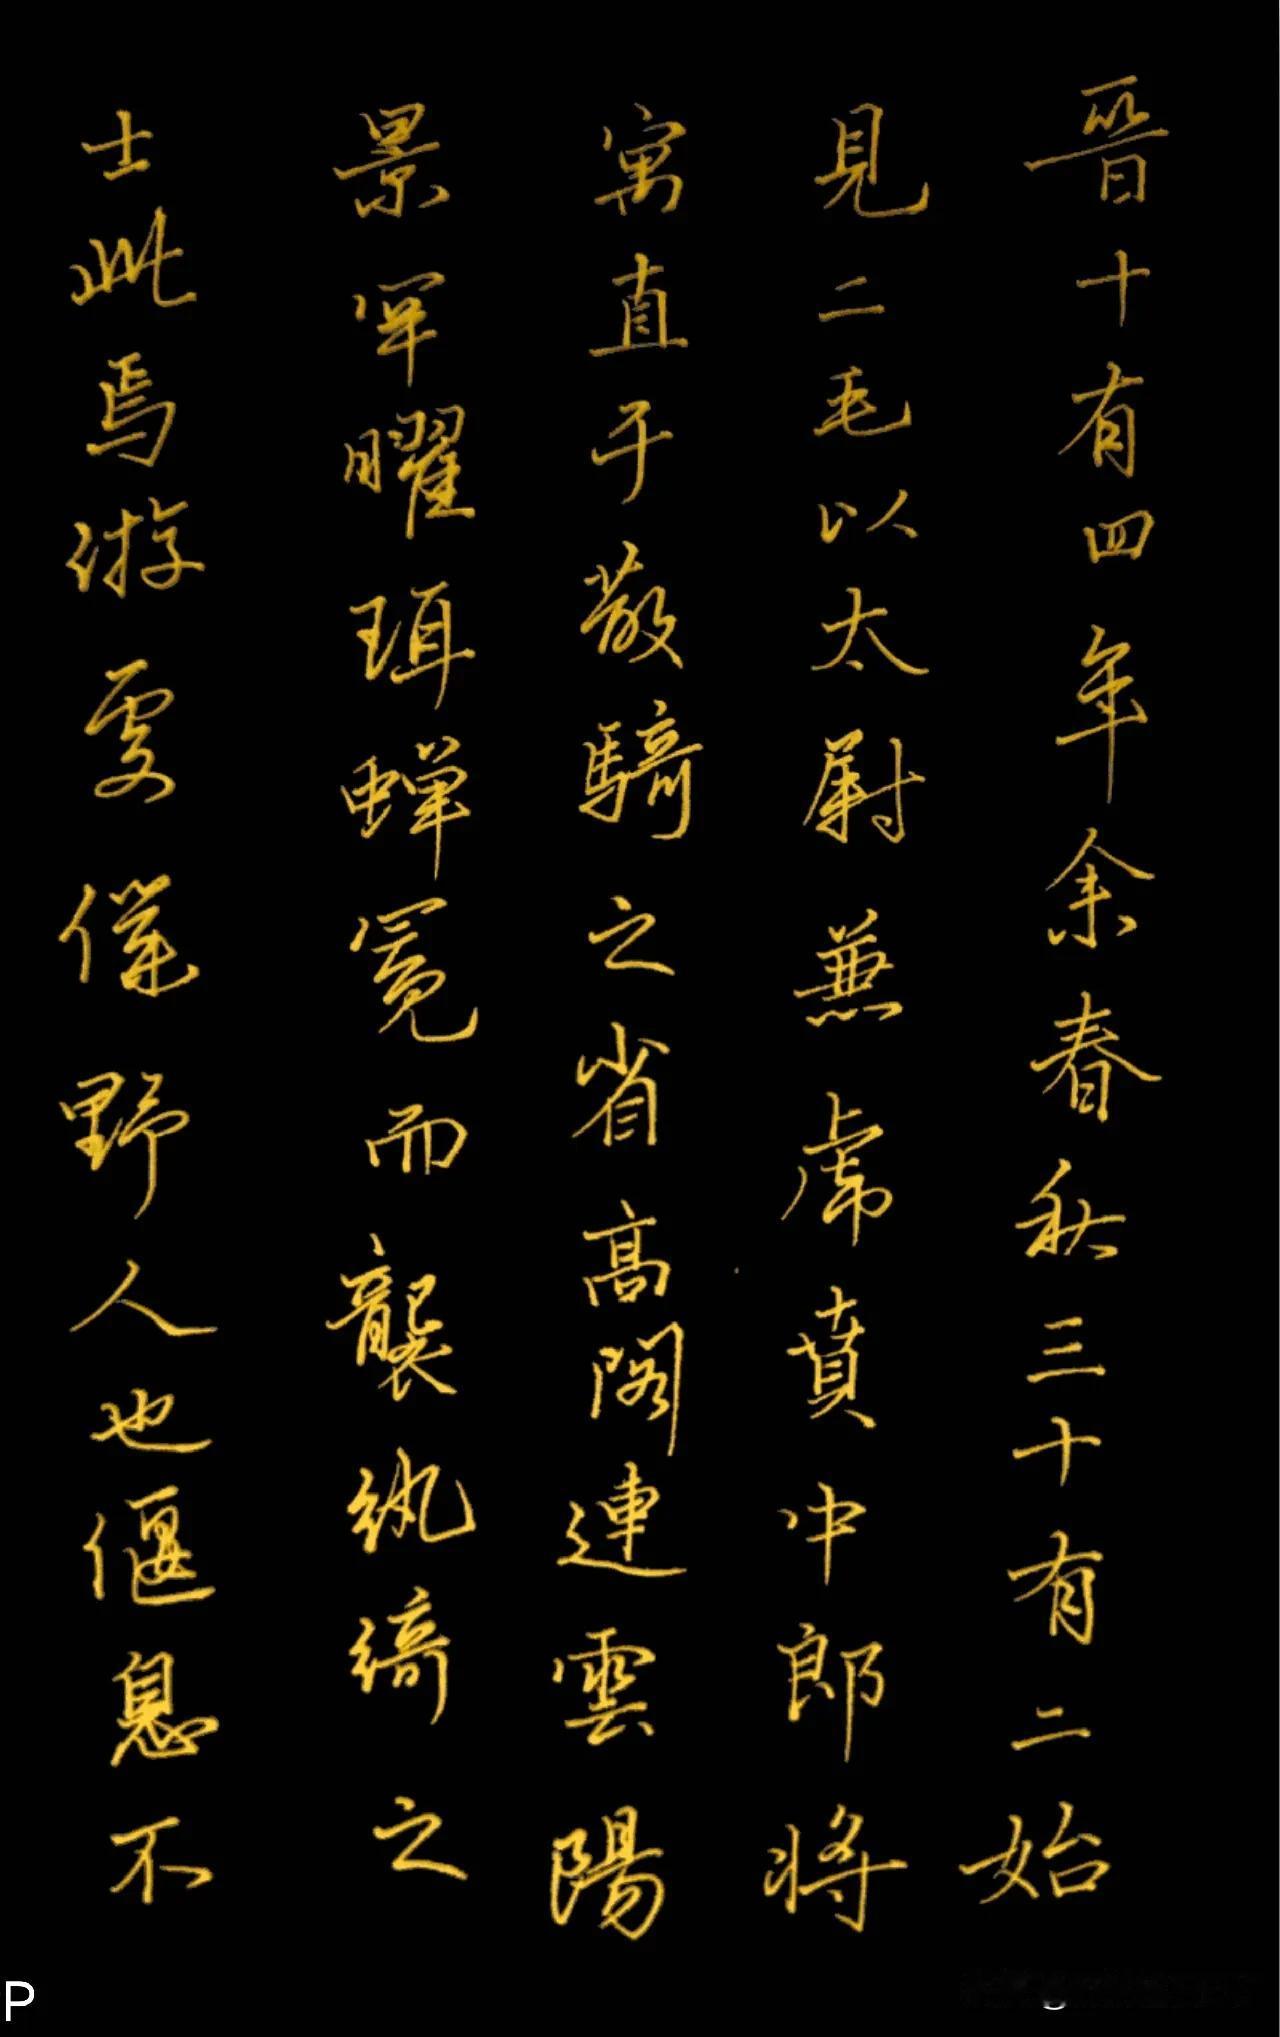 晉十有四年余春秋三十有二始
見二毛以太尉兼虎賁中郎將
寓直于散騎之省高閣連雲陽
景罕曜珥蟬冕而襲紈綺之
士此焉游處僕野人也偃息不
P